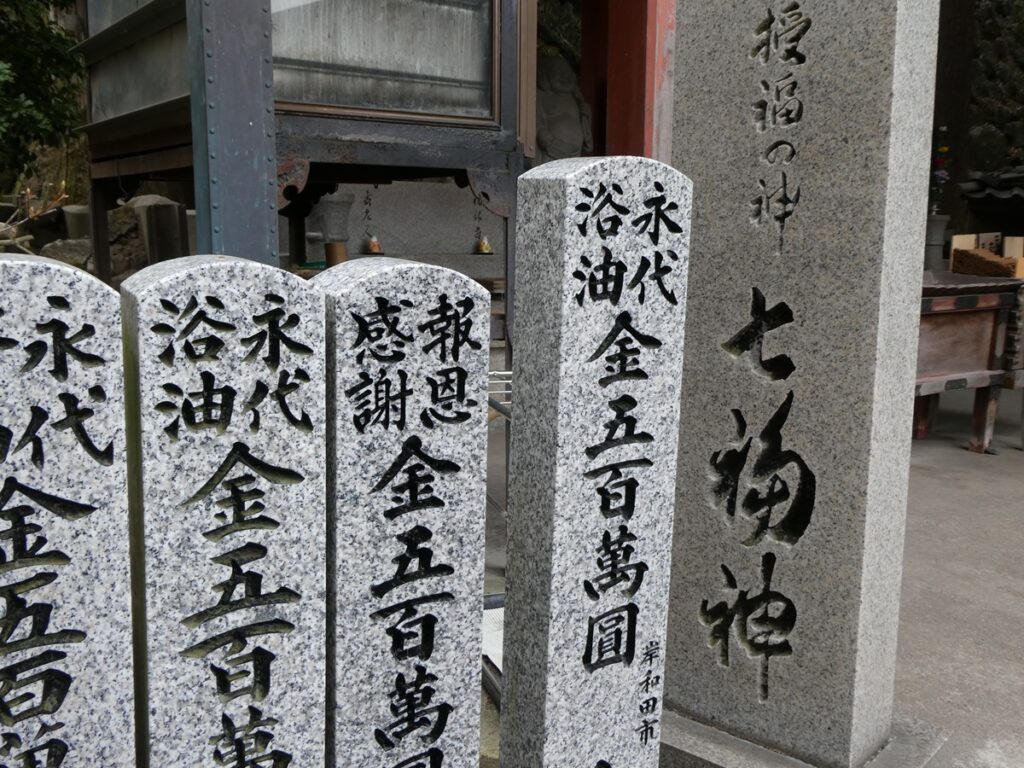 授福の神
七福神
永代
浴油
金五百萬圓
岸和田市
報恩
感謝
金五百萬圓
永代
浴油
金五百萬
永代
金五百萬